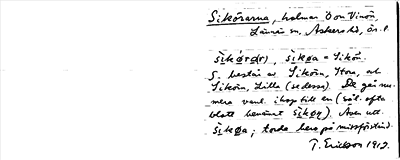 Sikörarna, holmar O om Vinön,
Lännäs sn, Askers hd, Ör. l.
sìkö́rà(r), sìkøa = Siköa.
S. består av Sikörn, Stora, och
Sikörn, Lilla (se dessa). De gå nu-
mera vanl. ihop till en (söl. ofta
blott benämnt sìkør). Även utt.
sìkøa; torde bero på missförstånd.
T. Ericsson 1912.